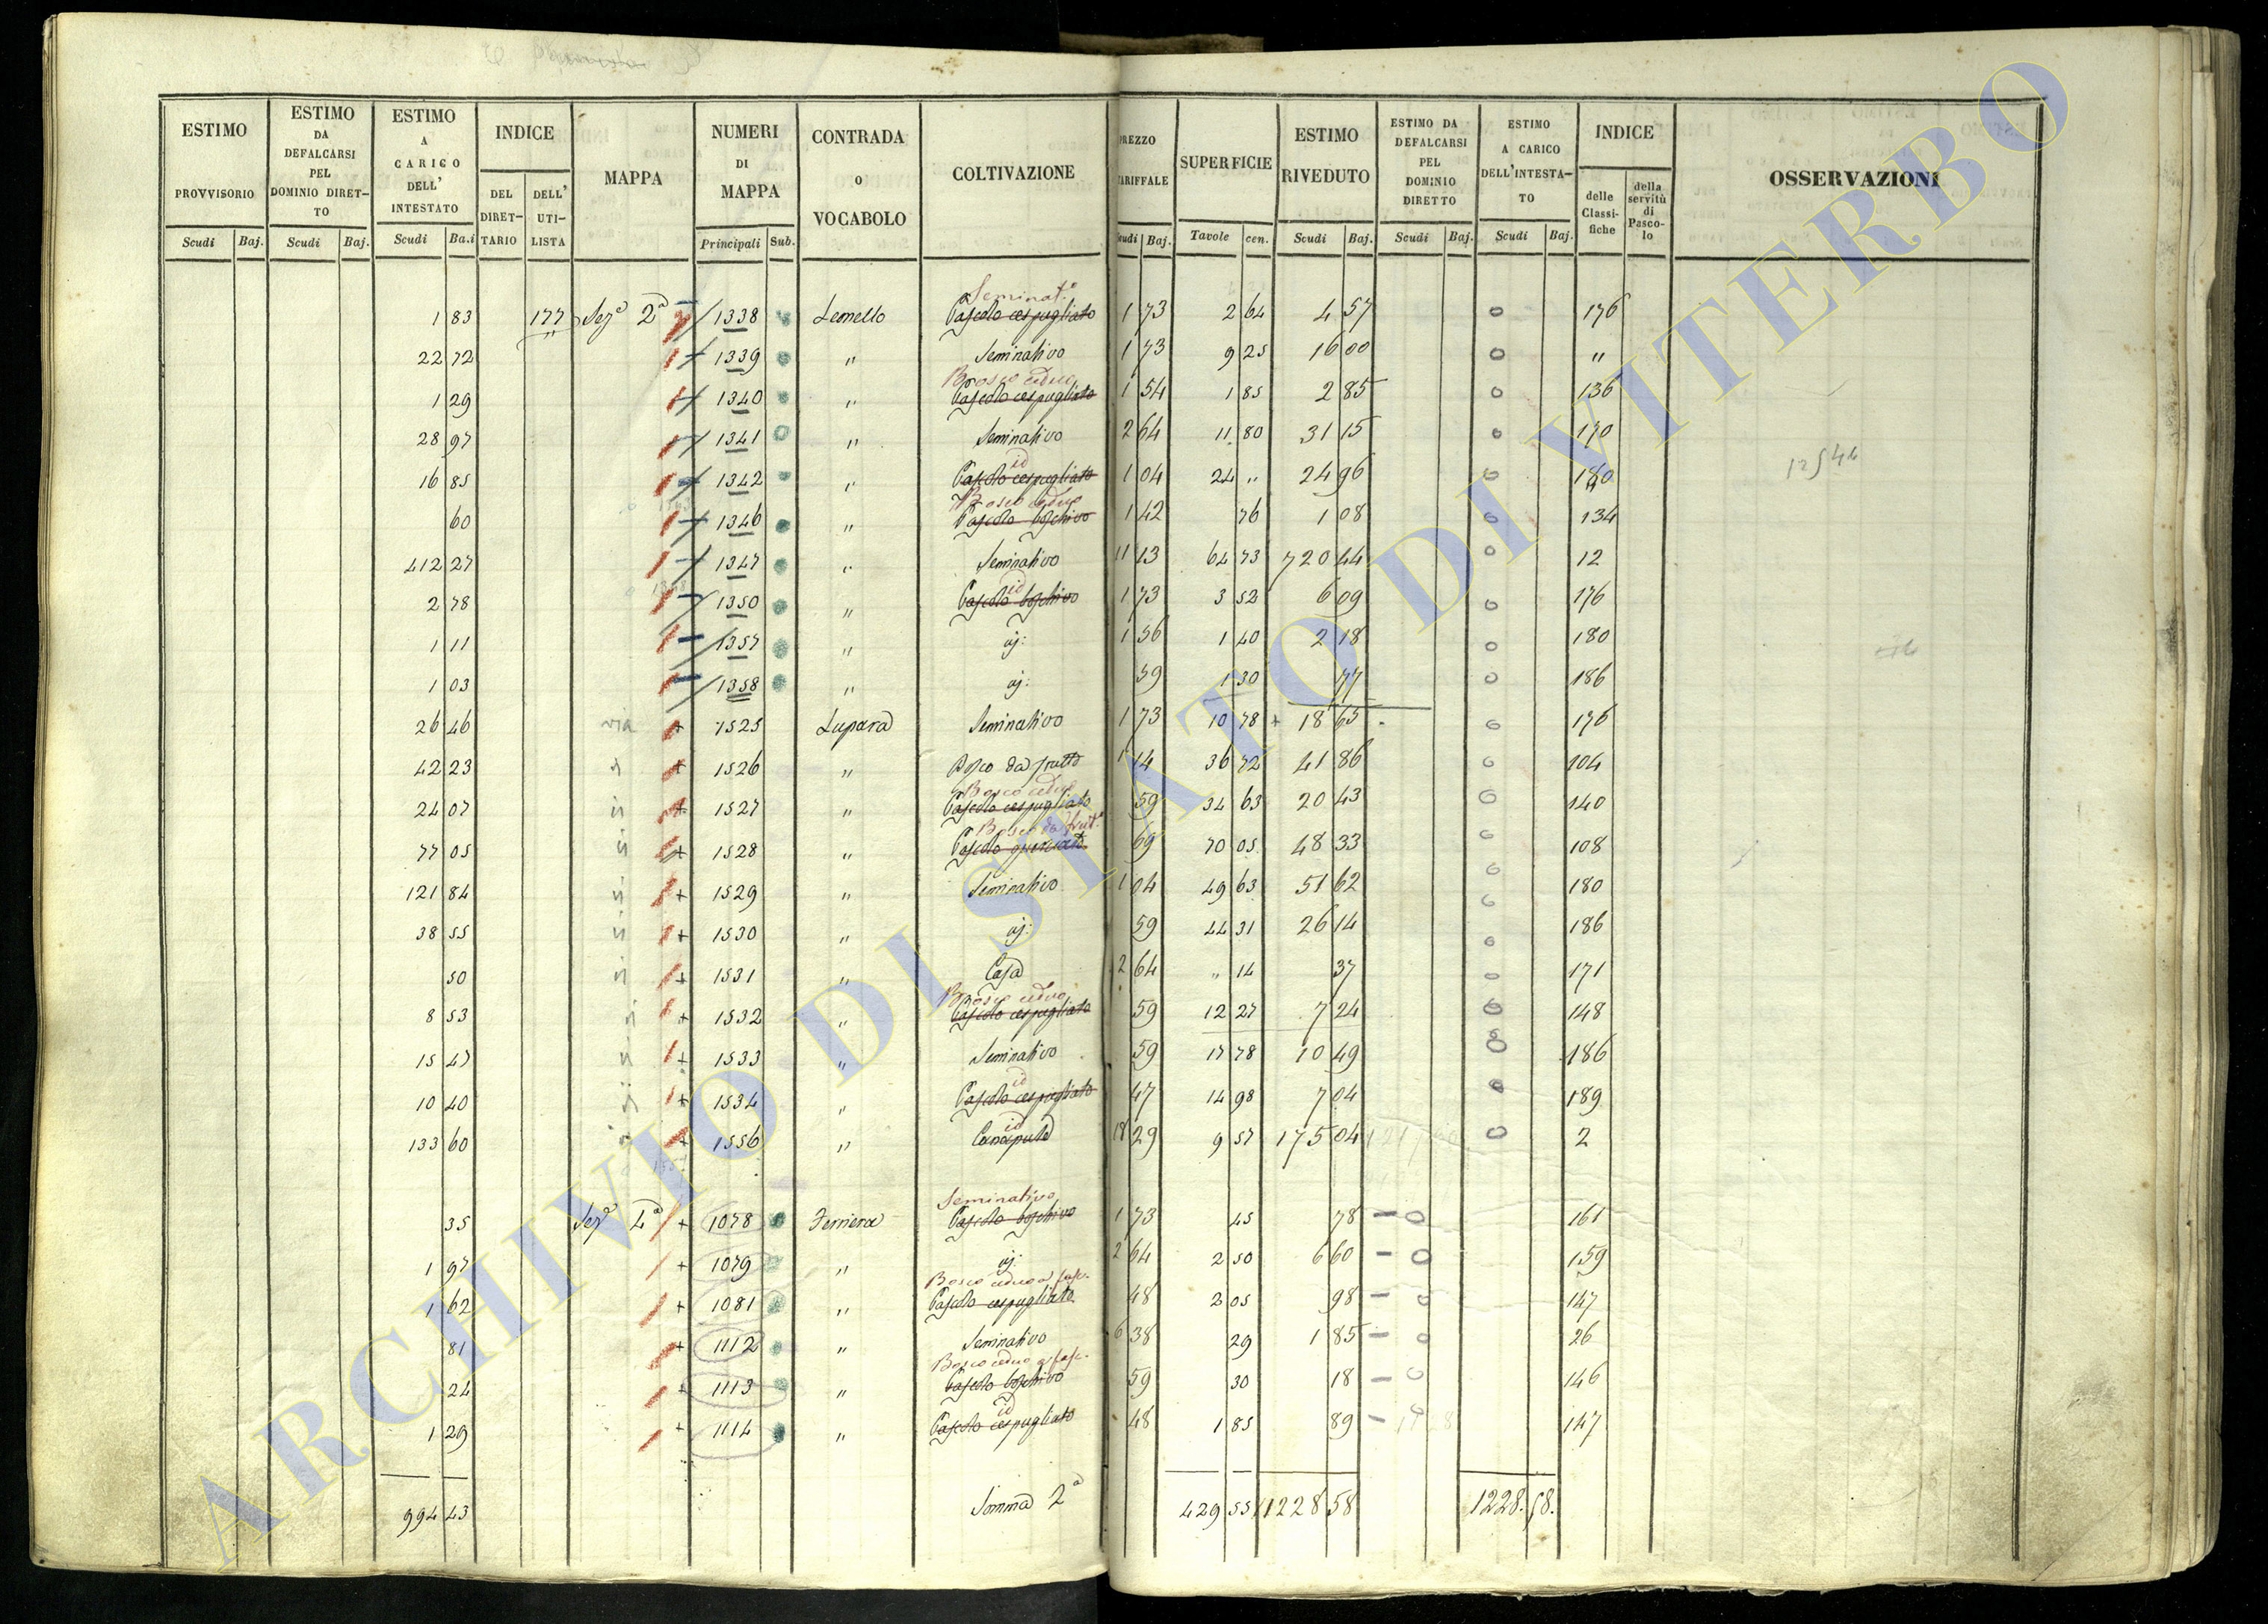 ESTIMO PROVVISORIO Scudi Baj. | ESTIMO DA DEFALCARSI PEL DOMINIO DIRET-TO Scudi Baj. | ESTIMO A CARICO DELL' INTESTATO Scudi Ba.i | INDICE DEL DIRET-TARIO DELL' UTI-LISTA | MAPPA | NUMERI DI MAPPA Principali Sub. | CONTRADA O VOCABOLO | COLTIVAZIONE | PREZZO TARIFFALE Scudi Baj. | SUPERFICIE Tavole cen. | ESTIMO RIVEDUTO Scudi Baj. | ESTIMO DA DEFALCARSI PEL DOMINIO DIRETTO Scudi Baj. | ESTIMO A CARICO DELL'INTESTA-TO Scudi Baj. | INDICE delle Classi-fiche della servitù di Pasco-lo | OSSERVAZIONI
1 83 177 Sez.e 2a 1338 Lemello Seminat.o Pascolo cespugliato 1 73 2 64 4 57 0 176
22 72 1339 " Seminativo 1 73 9 25 16 00 0 "
1 29 1340 " Bosco ceduo Pascolo cespugliato 1 54 1 85 2 85 0 136
28 97 1341 " Seminativo 2 64 11 80 31 15 0 170
16 85 1342 " id Pascolo cespugliato 1 04 24 " 24 96 0 180 12544
60 1346 " Bosco ceduo Pascolo boschivo 1 42 76 1 08 0 134
412 27 1347 " Seminativo 11 13 64 73 720 44 0 12
2 78 1350 " id Pascolo boschivo 1 73 3 52 6 09 0 176
1 11 1357 " id: 1 56 1 40 2 18 0 180
1 03 1358 " id: 59 1 30 77 0 186
26 46 via + 1525 Lupara Seminativo 1 73 10 78 + 18 65 0 176
42 23 + 1526 " Bosco da frutto 1 14 36 72 41 86 0 104
24 07 + 1527 " Bosco ceduo Pascolo cespugliato 59 34 63 20 43 0 140
77 05 + 1528 " Bosco da frutt.o Pascolo querciato 69 70 05 48 33 0 108
121 84 + 1529 " Seminativo 1 04 49 63 51 62 0 180
38 55 + 1530 " id: 59 44 31 26 14 0 186
50 + 1531 " Casa 2 64 " 14 37 0 171
8 53 + 1532 " Bosco ceduo Pascolo cespugliato 59 12 27 7 24 0 148
15 47 + 1533 " Seminativo 59 17 78 10 49 0 186
10 40 + 1534 " id Pascolo cespugliato 47 14 98 7 04 0 189
133 60 + 1556 " id Canapule 18 29 9 57 175 04 0 2
35 Sez.e 4a + 1078 Ferriera Seminativo Pascolo boschivo 1 73 45 78 - 0 161
1 97 + 1079 " id: 2 64 2 50 6 60 - 0 159
1 62 + 1081 " Bosco ceduo a fasc. Pascolo cespugliato 48 2 05 98 - 0 147
81 + 1112 " Seminativo 6 38 29 1 85 - 0 26
24 + 1113 " Bosco ceduo a fasc. Pascolo boschivo 59 30 18 - 0 146
1 29 + 1114 " id Pascolo cespugliato 48 1 85 89 - 147
994 43 Somma 2a 429 55 1228 58 1228.58.
ARCHIVIO DI STATO DI VITERBO